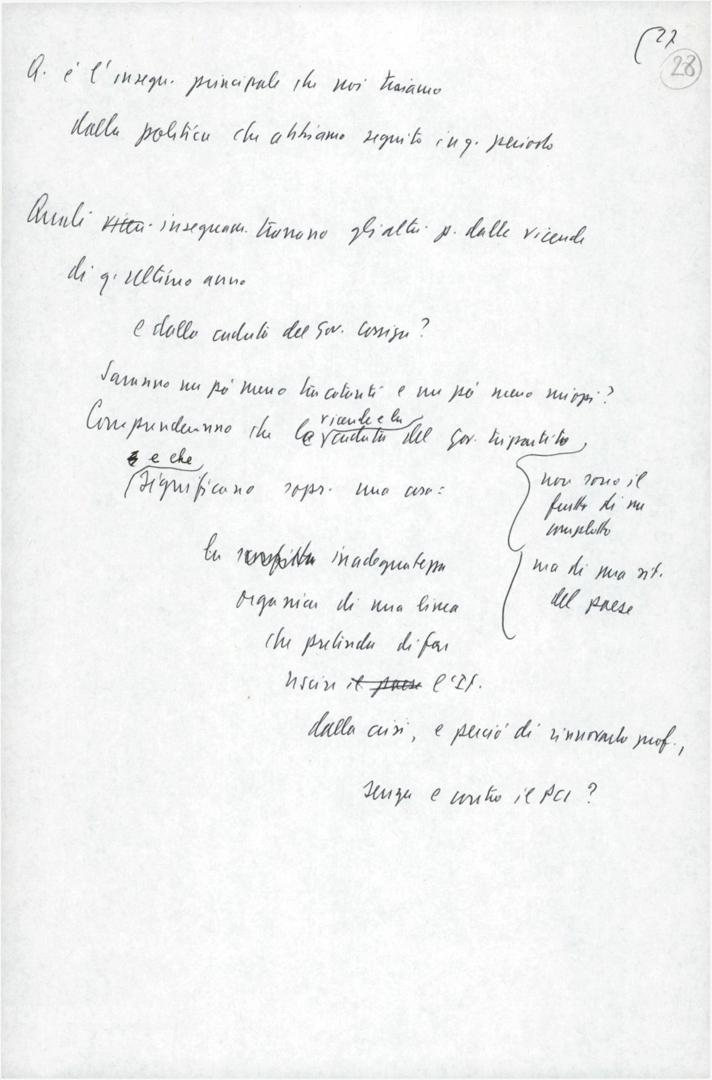 27
28
Q. è l'insegn. principale che noi traiamo
dalla politica che abbiamo seguito in q. periodo
Quali insegnam. trarranno gli altri p. dalle vicende
di q. ultimo anno
e dalla caduta del Gov. Cossiga?
Saranno un pò meno tracotanti e un pò meno miopi?
vicende e la
Comprenderanno che le caduta del Gov. tripartito,
e che
significano sopr. una cosa:
non sono il
frutto di un
complotto
ma di una sit.
del paese
la inadeguatezza
organica di una linea
che pretenda di far
uscire il paese l'It.
dalla crisi, e perciò di rinnovarlo prof.,
senza e contro il PCI?